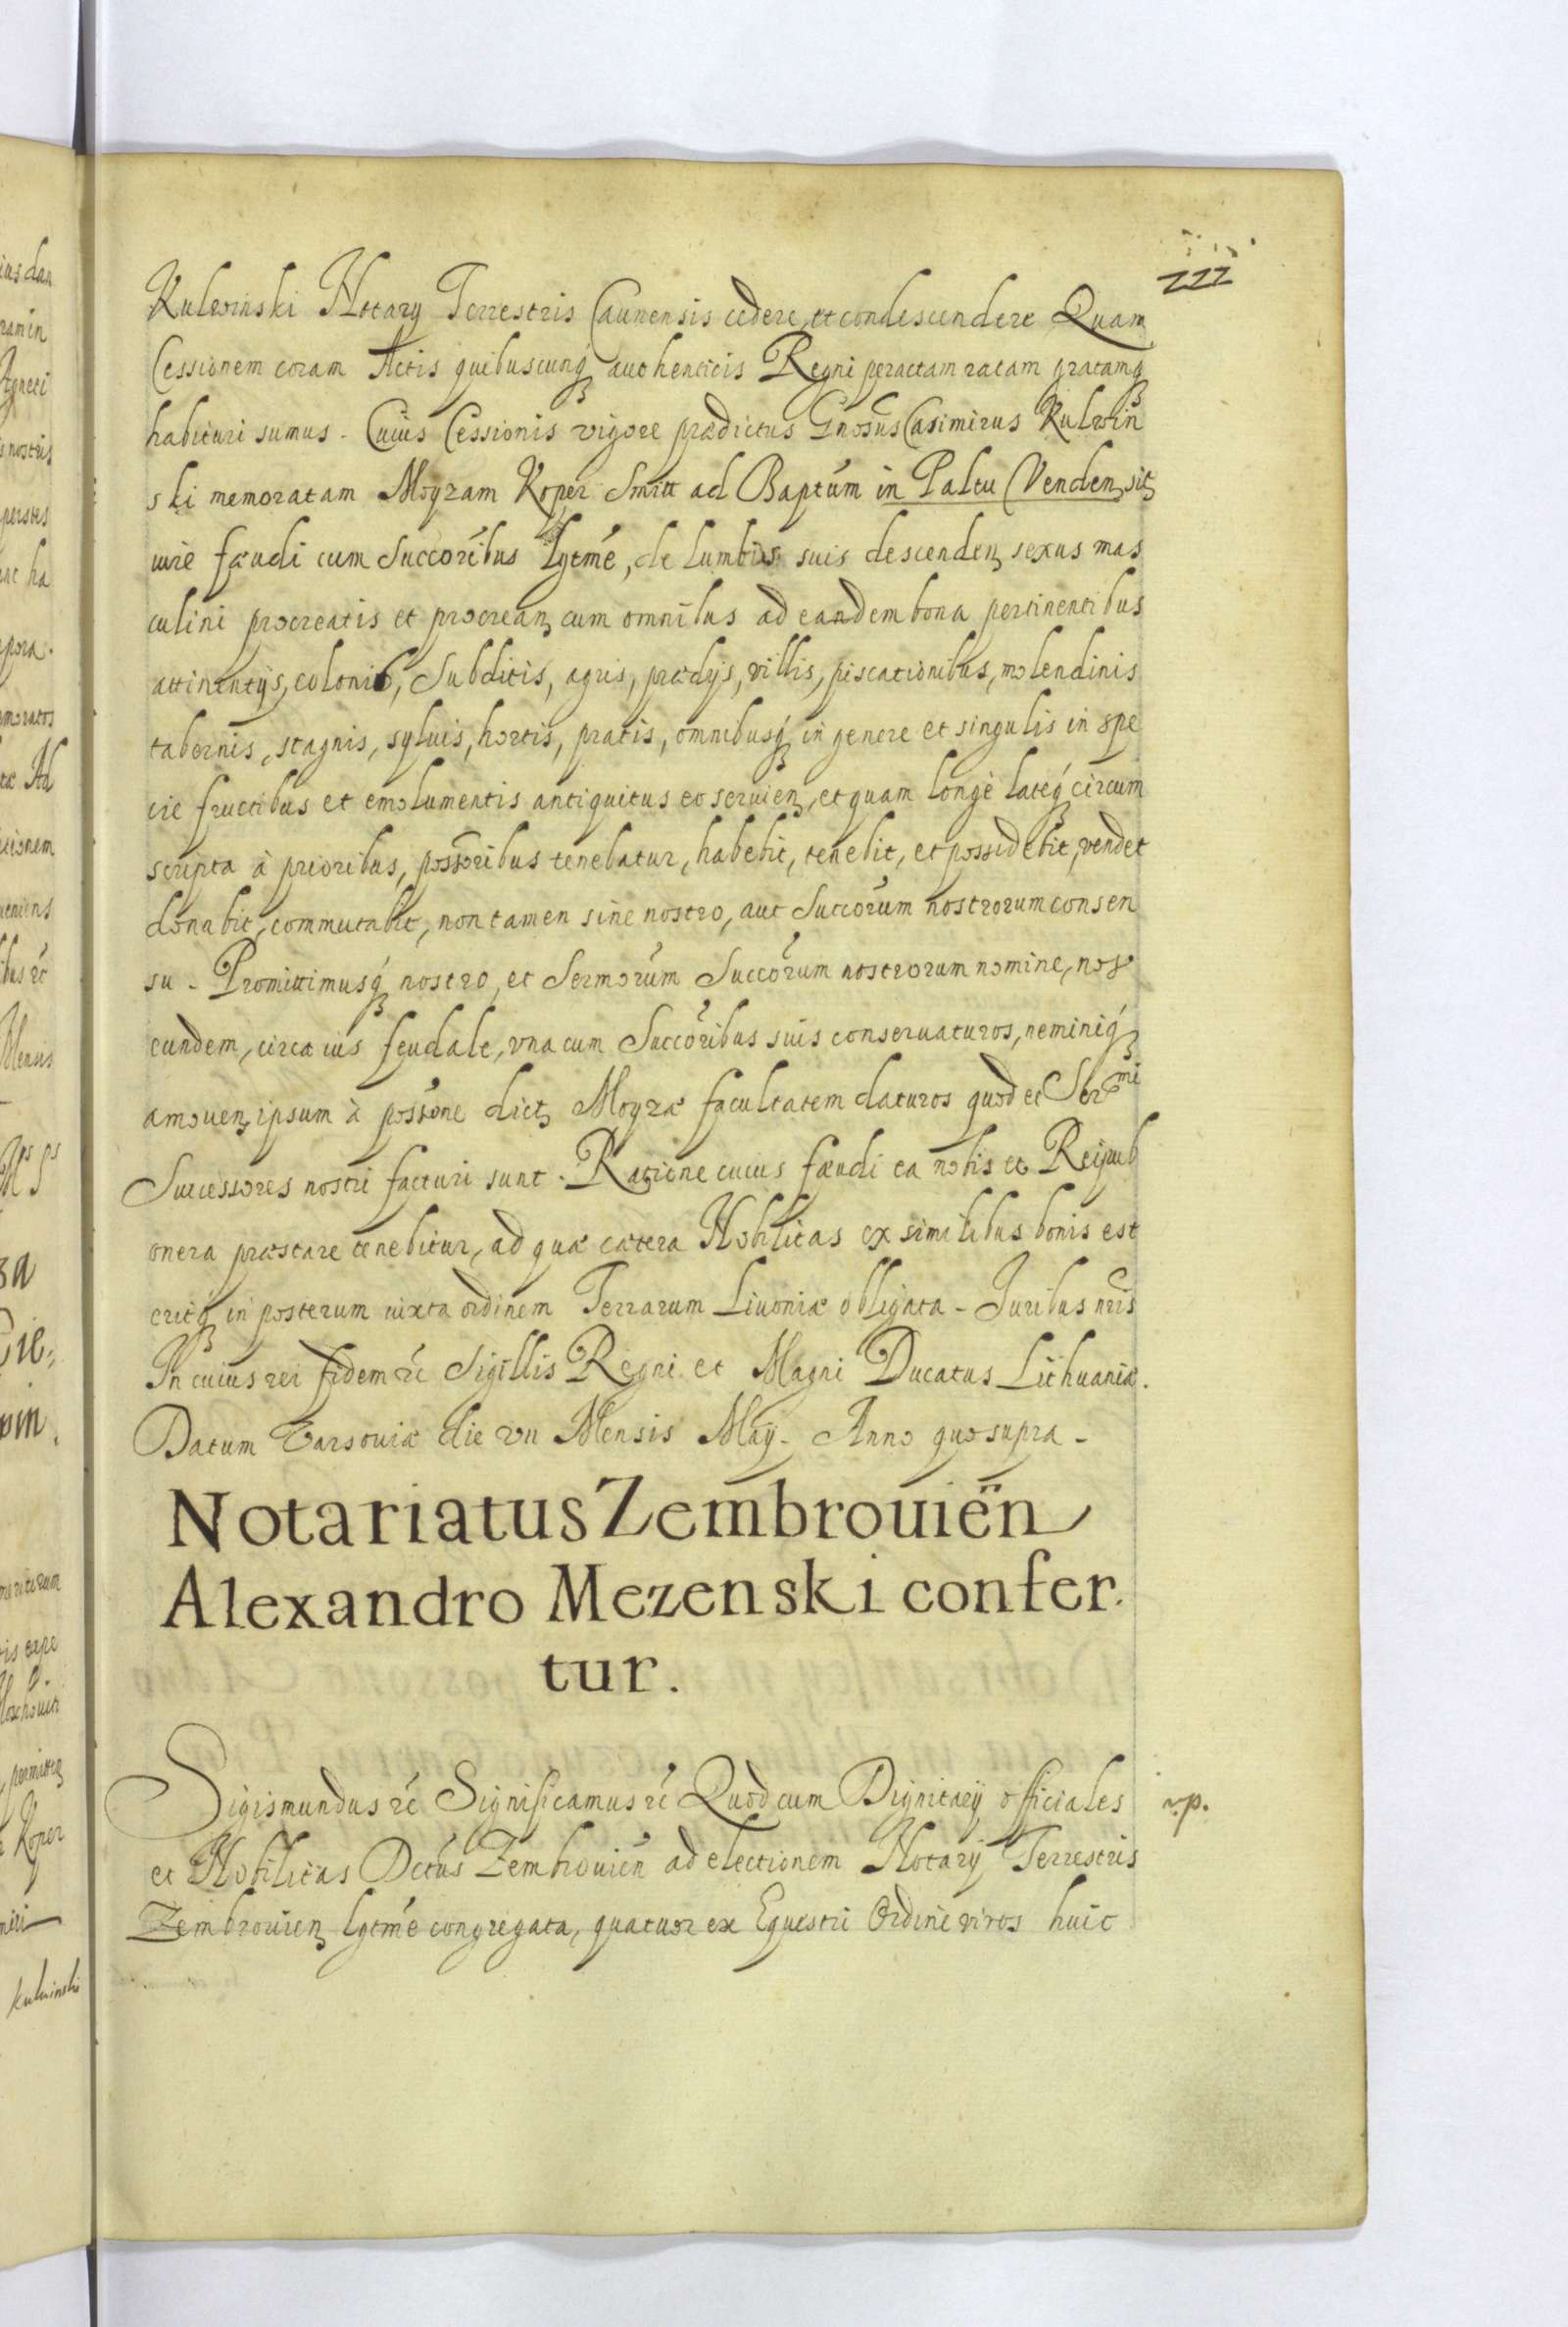 222
Kulwinski Notarÿ Terrestris Caunensis cedere, et condescendere Quam
Cessionem coram Actis quibuscunq́ authenticis Regni peractam ratam gratamq́
habituri sumus. Cuius Cessionis vigore prædictus Gnosus Casimirus Kulwin
ski memoratam Moyzam Koper Smitt ad Baptum in Paltu Venden, sit,
iure fæudi cum Succoribus lgtmé, de lumbis suis descenden, sexus mas
culini procreatis et procrean, cum omnibus ad eandem bona pertinentibus
attinentijs, colonis, Subditis, agris, prædijs, villis, piscationibus, molendinis
tabernis, stagnis, sÿluis, hortis, pratis, omnibusq́ in genere et singulis in spe
cie fructibus et emolumentis antiquitus eo seruien, et quam longè lateq́ circum
scripta à prioribus, possoribus tenebatur, habebit, tenebit, et possidebit, vendet
donabit, commutabit, non tamen sine nostro, aut Succorum nostrorum consen
su. Promittimusq́ nostro, et Sermorum Succorum nostrorum nomine, nos
eundem, circa ius feudale, vna cum Succoribus suis conseruaturos, neminiq́
amouen, ipsum à possone dict, Moyzæ facultatem daturos quod et Sermi
Successores nostri facturi sunt. Ratione cuius fæudi ea nobis et Reipub
onera præstare tenebitur, ad quæ cætera Nobilitas ex similibus bonis est
eritq́ in posterum iuxta ordinem Terrarum Liuoniæ obligata. Juribus nris
In cuius rei fidem rć Sigillis Regni et Magni Ducatus Lithuaniæ.
Datum Varsouiæ die vii Mensis Maÿ. Anno quo supra.
Notariatus Zembrouien̈
Alexandro Mezenski confer
tur.
Sigismundus rć Significamus rć Quod cum Dignitarÿ officiales
et Nobilitas Dctus Zembrouien ad electionem Notarÿ Terrestris
Zembrouien, lgtmé congregata, quatuor ex Equestri Ordine viros huic